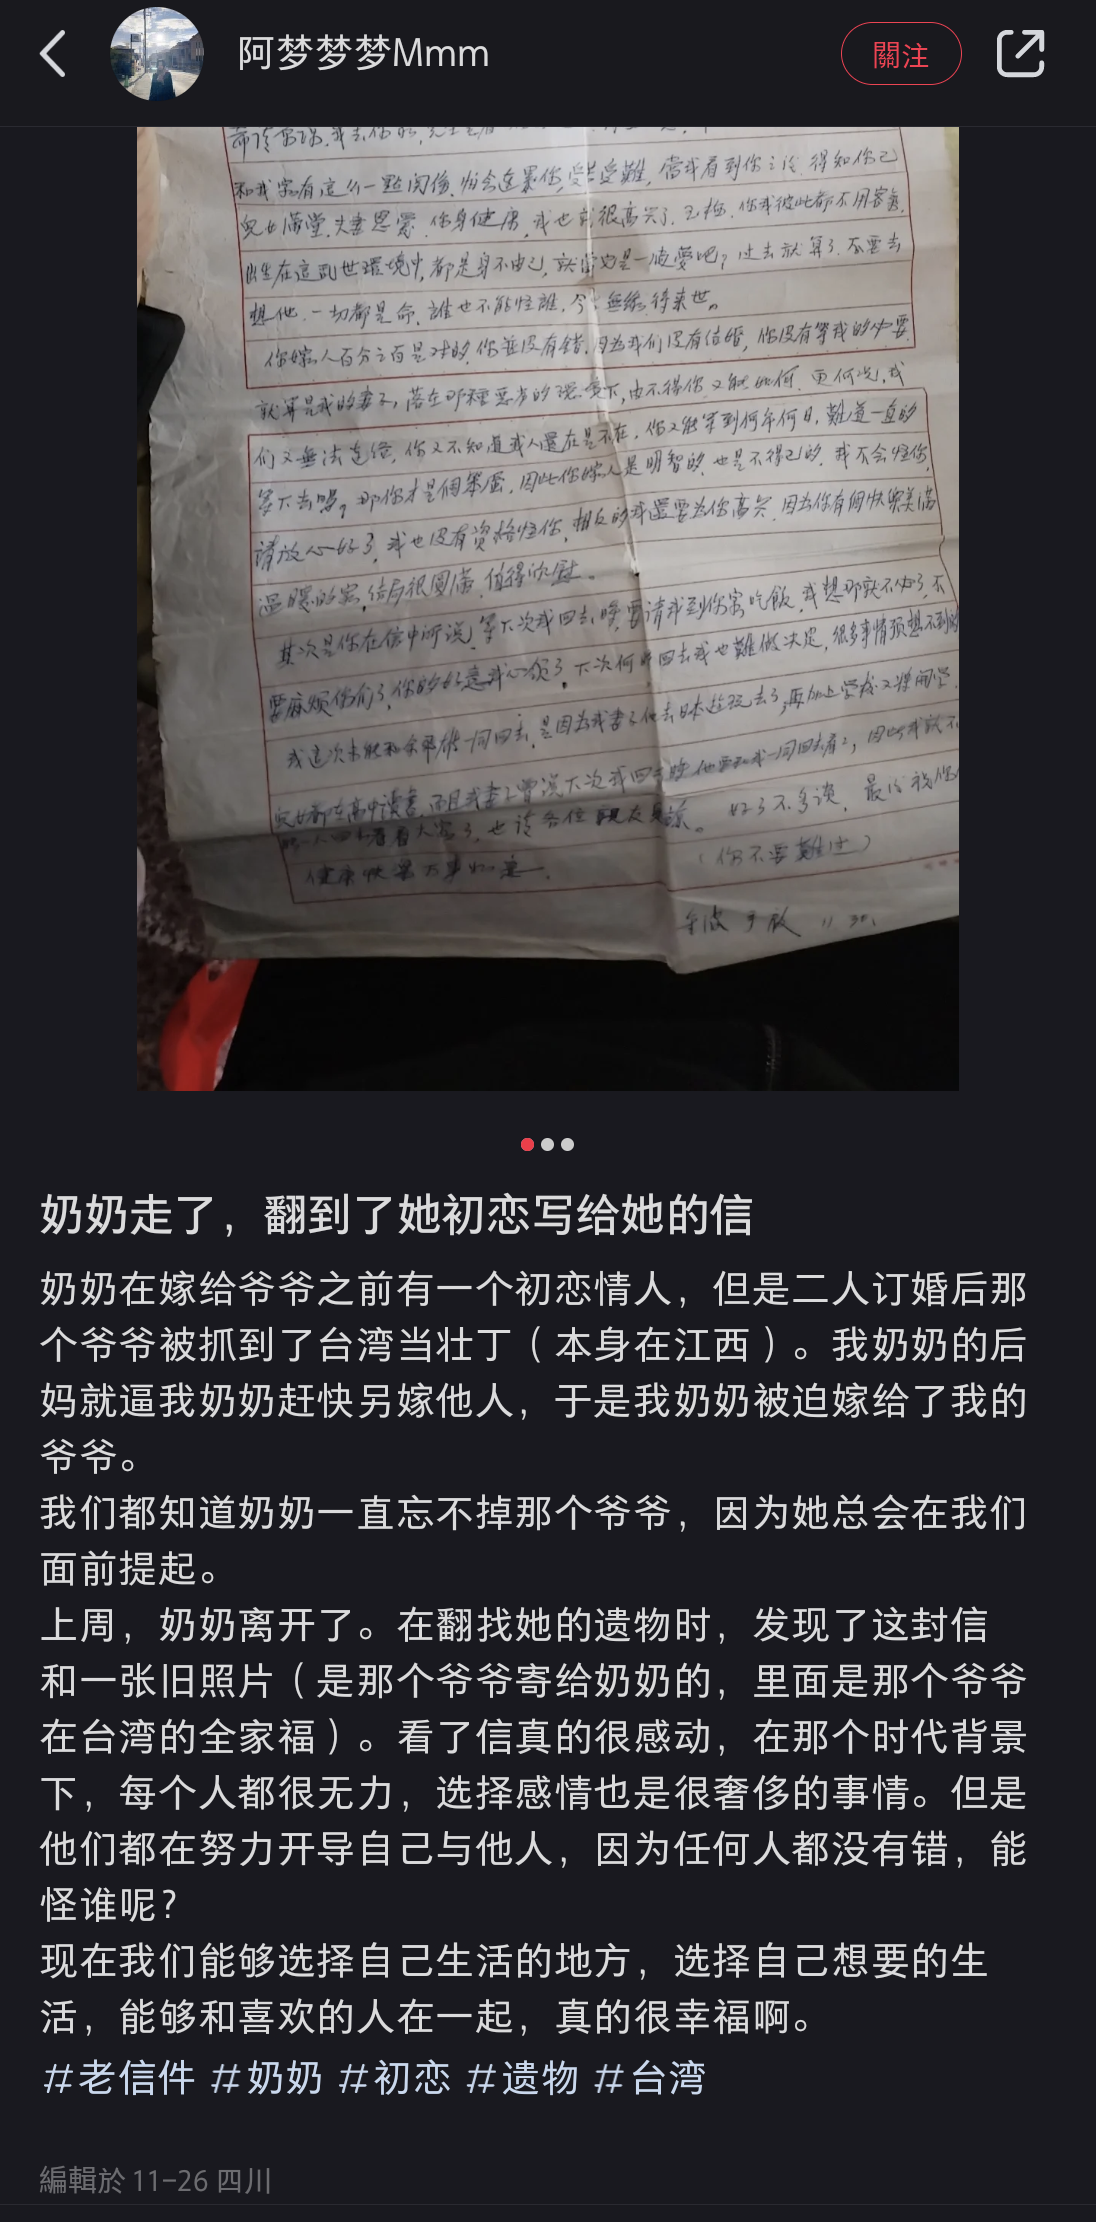 阿梦梦梦Mmm
關注
和我家有這么一點関係,
受苦受難,當我看到你之後,得知你已
兒女滿堂,夫妻恩愛,你身健康,我也就很高兴了,你我彼此都不用客氣,
出生在這乱世環境中,都是身不由己,就當它是一場夢吧?过去就算了.不要去
想他.一切都是命,誰也不能怪誰,今生無緣,待来世。
你嫁人百分之百是对的,你並没有错,因为我们没有结婚,你没有等我的必要
就算是我的妻子,落在那種恶劣的環境下,由不得你,又能如何.更何况,我
们又無法連絡,你又不知道我人還在是不在,你又能等到何年何日,難道一直的
等下去嗎?那你才是個笨蛋,因此你嫁人是明智的,也是不得已的.我不会怪你,
請放心好了,我也没有資格怪你,相反的我還要为你高兴,因为你有個快樂美满
温暖的家,结局很圓满,值得欣慰。
其次是你在信中所说,等下次我回去時,要請我到你家吃飯,我想那就不必了,不
要麻烦你们了,你的好意我心领了,下次何時回去我也難做决定,很多事情预想不到的
我這次未能和 一同回去,是因为我妻子他去日本遊玩去了,再加上學校又将開学,
兒女都在高中讀書,而且我妻子曾说下次我回去時他要和我一同回去看看,因此我就不
能一人回去看看大家了,也请各位親友見諒。 好了不多谈,最后祝你
健康快樂万事如意. (你不要難过)
手啟 11.30.
奶奶走了，翻到了她初恋写给她的信
奶奶在嫁给爷爷之前有一个初恋情人，但是二人订婚后那
个爷爷被抓到了台湾当壮丁（本身在江西）。我奶奶的后
妈就逼我奶奶赶快另嫁他人，于是我奶奶被迫嫁给了我的
爷爷。
我们都知道奶奶一直忘不掉那个爷爷，因为她总会在我们
面前提起。
上周，奶奶离开了。在翻找她的遗物时，发现了这封信
和一张旧照片（是那个爷爷寄给奶奶的，里面是那个爷爷
在台湾的全家福）。看了信真的很感动，在那个时代背景
下，每个人都很无力，选择感情也是很奢侈的事情。但是
他们都在努力开导自己与他人，因为任何人都没有错，能
怪谁呢？
现在我们能够选择自己生活的地方，选择自己想要的生
活，能够和喜欢的人在一起，真的很幸福啊。
#老信件 #奶奶 #初恋 #遗物 #台湾
編輯於 11-26 四川